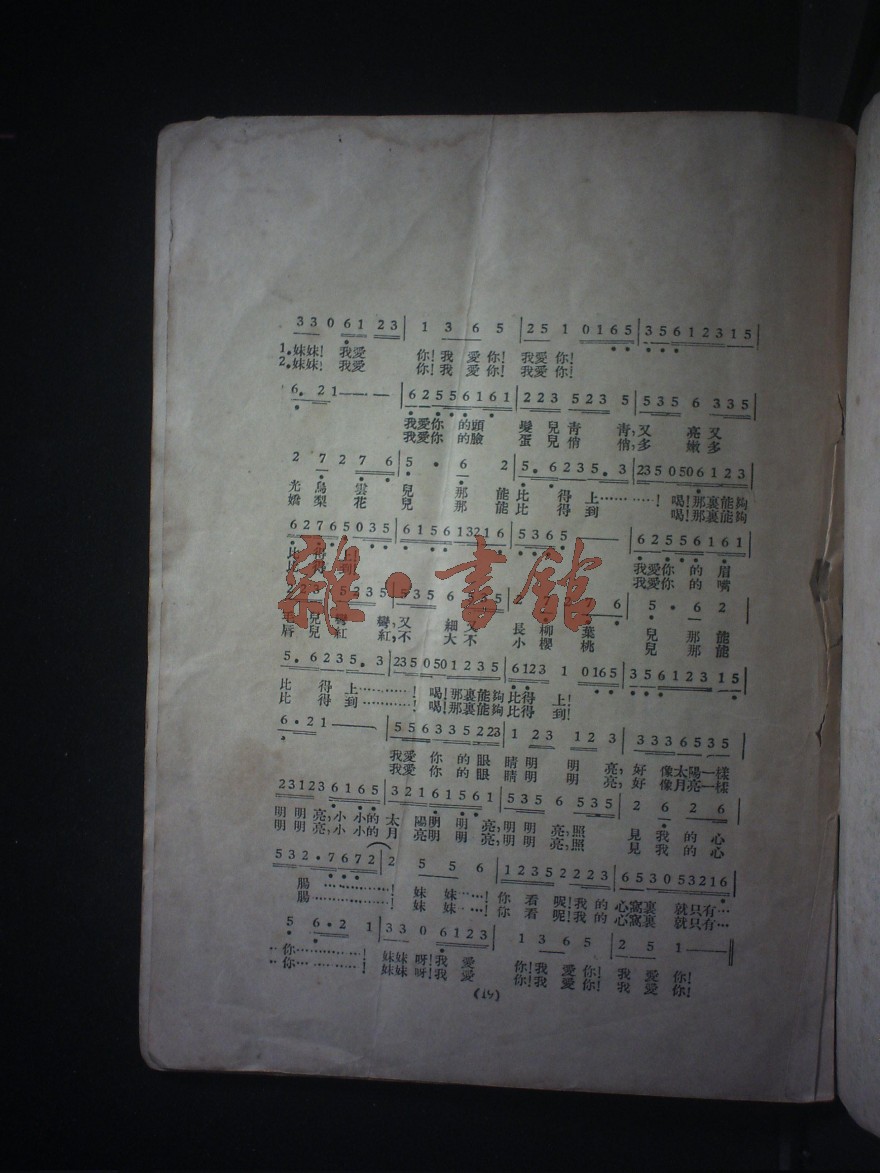 3 3 0 6 1 2 3 | 1 3 6 5 | 2 5 1 0 1 6 5 | 3 5 6 1 2 3 1 5 |
1.妹妹! 我愛 你!我 愛你! 我愛你!
2.妹妹! 我愛 你!我 愛你! 我愛你!
6. 2 1 — — | 6 2 5 5 6 1 6 1 | 2 2 3 5 2 3 5 | 5 3 5 6 3 3 5 |
我愛你 的頭 髮兒青 青,又 亮又
我愛你 的臉 蛋兒俏 俏,多 嫩多
2 7 2 7 6 | 5 . 6 2 | 5. 6 2 3 5. 3 | 2 3 5 0 5 0 6 1 2 3 |
光烏 雲 兒 那 能比 得 上…………! 喝!那裏能夠
嬌梨 花 兒 那 能比 得 到 喝!那裏能夠
6 2 7 6 5 0 3 5 | 6 1 5 6 1 3 2 1 6 | 5 3 6 5 — — | 6 2 5 5 6 1 6 1 |
比 得 上!
比 得 到!
我愛你 的 眉
我愛你 的 嘴
毛 兒 彎 彎,又 細 又 長 柳 葉 兒 那 能
唇 兒 紅 紅,不 大 不 小 櫻 桃 兒 那 能
5. 6 2 3 5. 3 | 2 3 5 0 5 0 1 2 3 5 | 6 1 2 3 1 0 1 6 5 | 3 5 6 1 2 3 1 5 |
比 得 上…………! 喝!那裏能夠比得 上!
比 得 到…………! 喝!那裏能夠比得 到!
6. 2 1 — — | 5 5 6 3 3 5 2 2 3 | 1 2 3 1 2 3 | 3 3 3 6 5 3 5 |
我愛 你 的 眼 睛明 明 亮,好 像太陽一樣
我愛 你 的 眼 睛明 明 亮,好 像月亮一樣
2 3 1 2 3 6 1 6 5 | 3 2 1 6 1 5 6 1 | 5 3 5 6 5 3 5 | 2 6 2 6 |
明明亮,小小的 太 陽明 明 亮,明明 亮,照 見 我 的 心
明明亮,小小的 月 亮明 明 亮,明明 亮,照 見 我 的 心
5 3 2 . 7 6 7 2 | 2 5 5 6 | 1 2 3 5 2 2 2 3 | 6 5 3 0 5 3 2 1 6 |
腸…………! 妹 妹……! 你 看 呢!我的 心窩裏 就只有…
腸…………! 妹 妹……! 你 看 呢!我的 心窩裏 就只有…
5 6. 2 1 | 3 3 0 6 1 2 3 | 1 3 6 5 | 2 5 1 — ‖
…你…………! 妹妹 呀!我 愛 你!我 愛你! 我 愛 你!
…你…………! 妹妹 呀!我 愛 你!我 愛你! 我 愛 你!
雜·書館